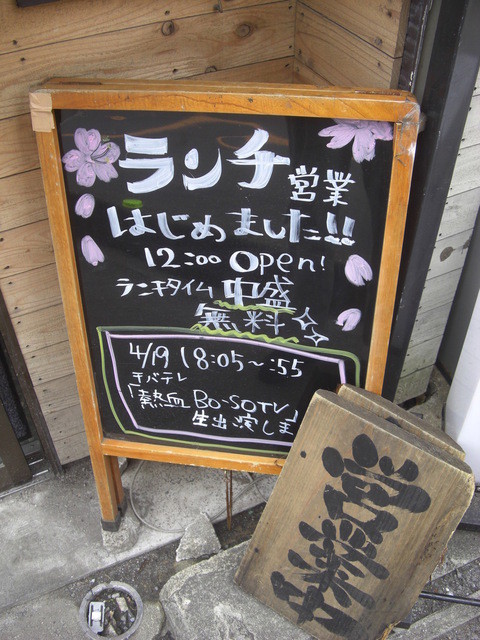 ランチ営業
はじめました!!
12:00 Open!
ランチタイム 中盛
無料
4/19 18:05〜:55
チバテレ
「熱血BO-SO TV」
生出演しま
営業中